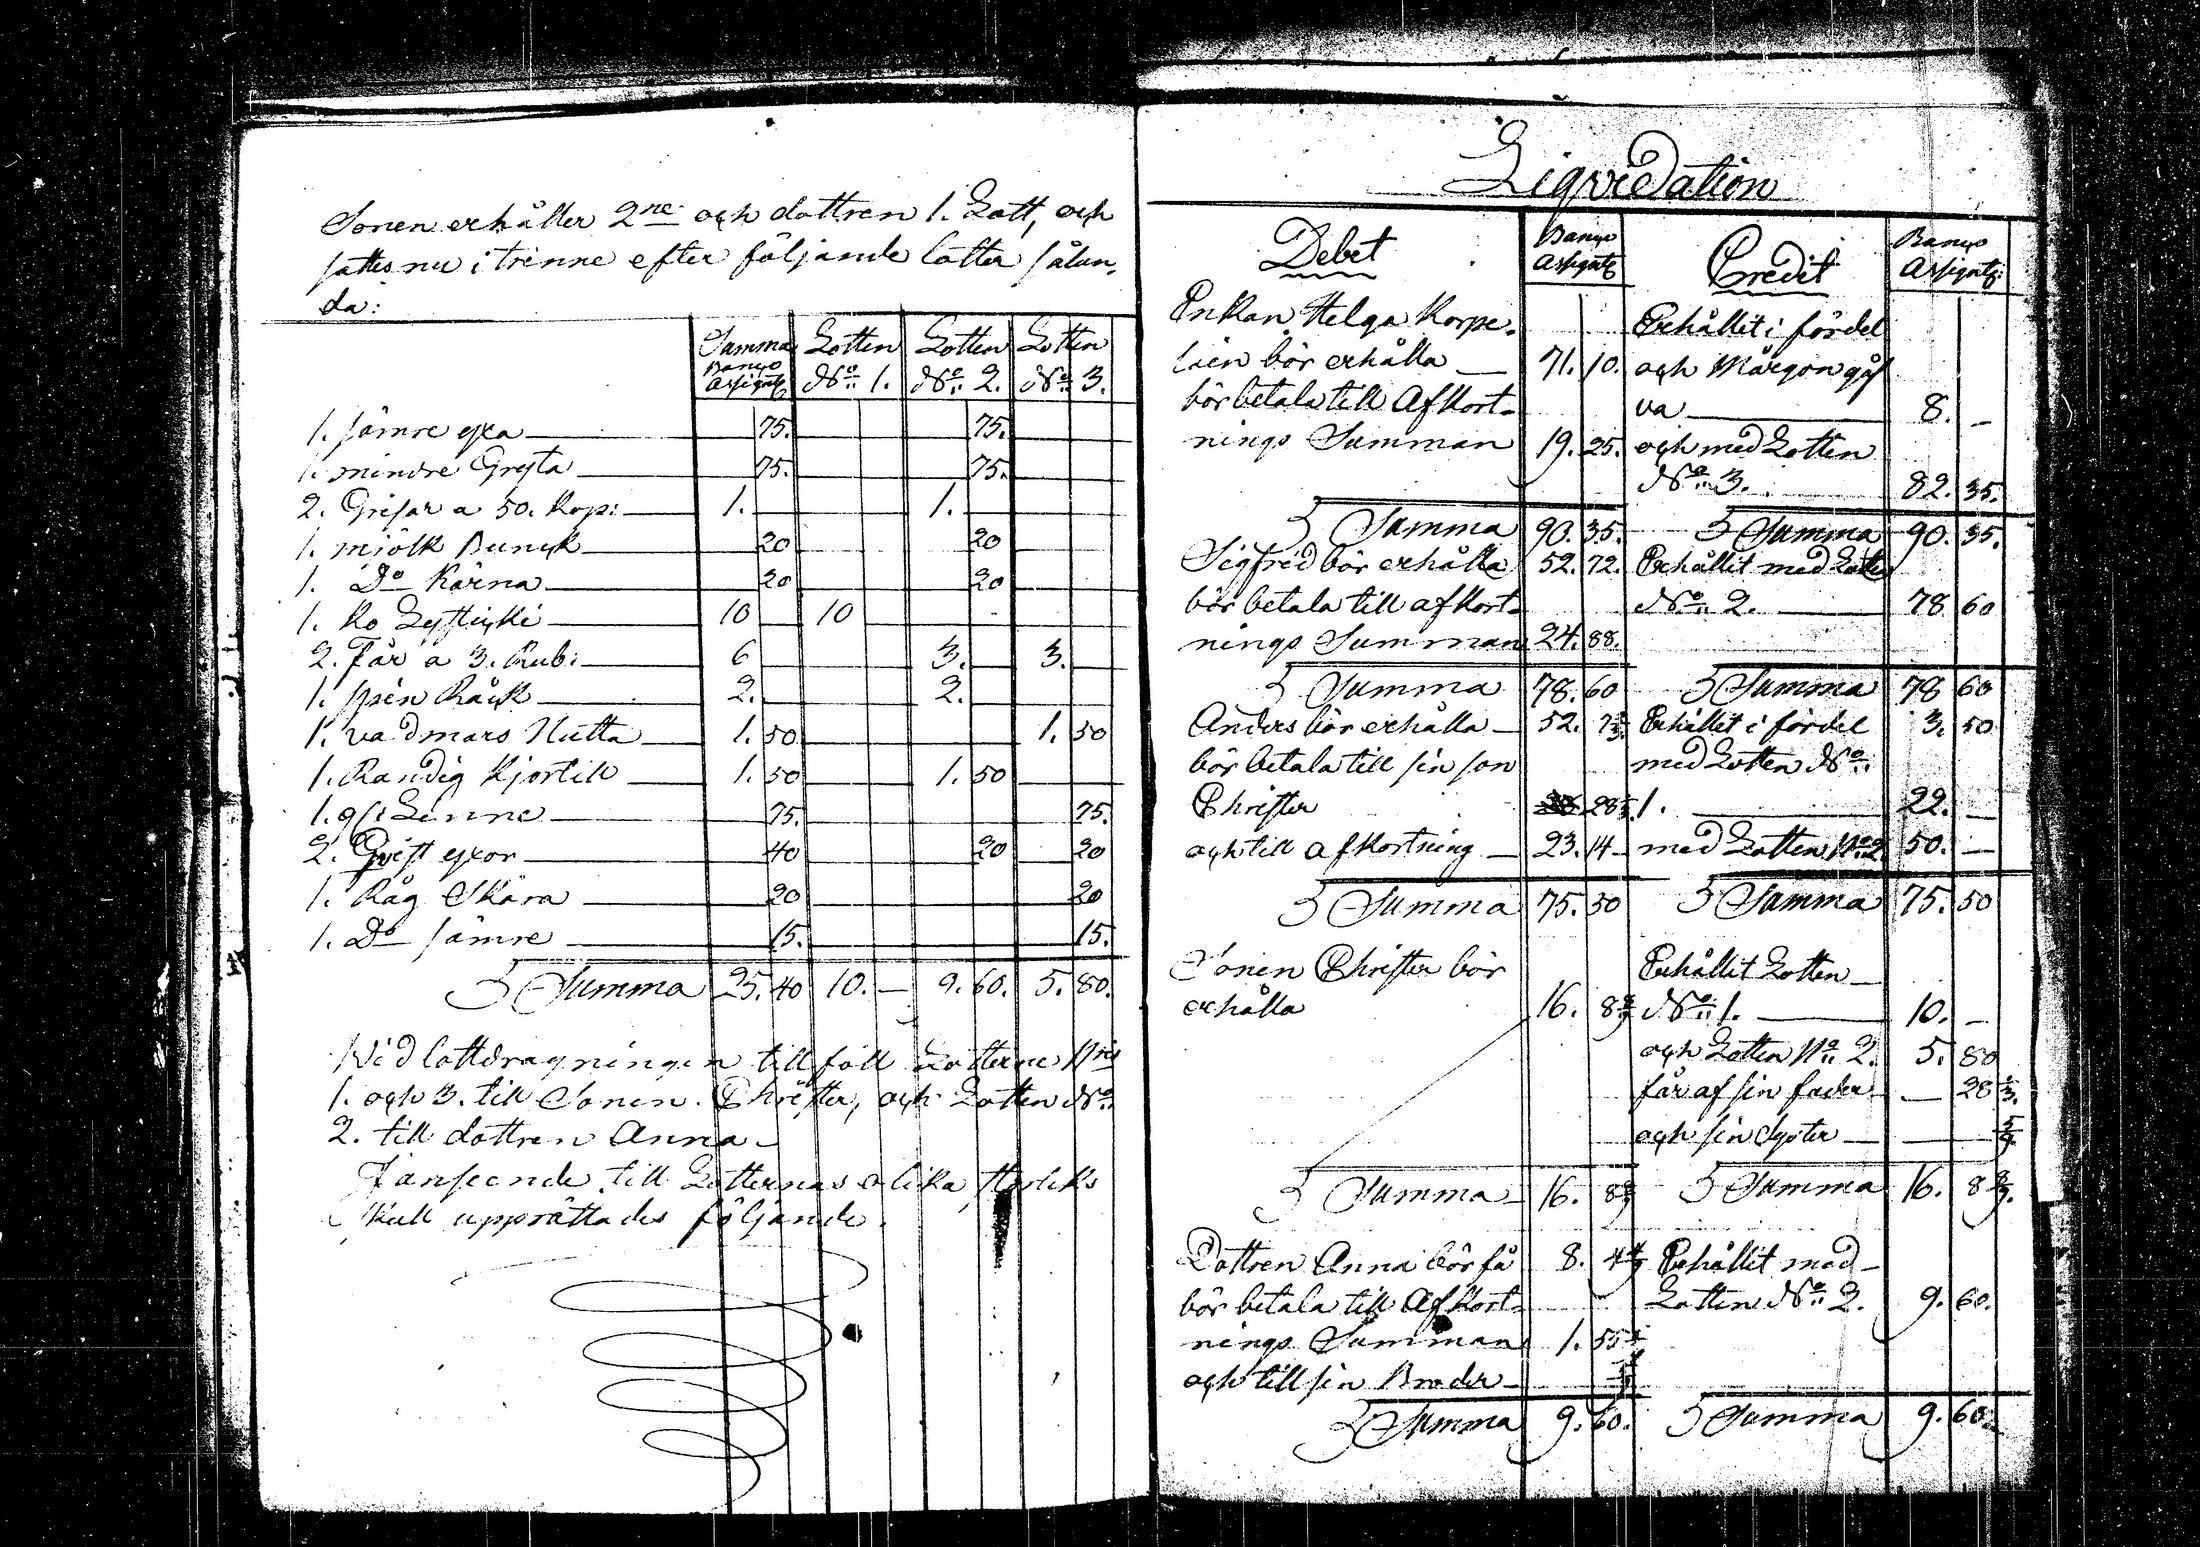 Sonen erhåller 2ne och dottren 1. Lott, och
sattes nu i trenne efter följande lotter sålun-
da:
Summa Banco Assignat: Lotten No 1. Lotten No 2. Lotten No 3.
1. sämre yxa 75. 75.
1. mindre Gryta 75. 75.
2. Grisar a 50. Kop: 1. 1.
1. mjölk Bunck 20 20
1. Do Kärna 20 20
1. Ko Lysticki 10 10
2. Får a 3. Rub: 6 3. 3.
1. spin Råck 2. 2.
1. vadmars Hutta 1. 50 1. 50
1. Randig Kjortill 1. 50 1. 50
1. Linne 75. 75.
2. yxor 40 20 20
1. Råg Skära 20 20
1. Do sämre 15. 15.
Summa 25. 40 10. — 9. 60. 5. 80.
Vid lottdragningen tillföll Lotterne Nris
1. och 3. till Sonen Christer, och Lotten No
2. till dottren Anna.
I anseende till Lotternas olika storleks
skull upprättades följande.
Liqvidation
Debet Banco Assignat: Credit Banco Assignat:
Enkan Helga Korpe- Erhållit i fördel
läin bör erhålla — 71. 10. och Mårgongåf
bör betala till Afkort- va — 8. —
nings Summan 19. 25. och med Lotten
No 3. 82. 35.
Summa 90. 35. Summa 90. 35.
Sigfrid bör erhålla 52. 72. Erhållit med Lotten
bör betala till afkort- No 2. — 78 60
nings Summan 24. 88.
Summa 78. 60 Summa 78 60
Anders bör erhålla — 52. Erhållit i fördel 3. 50
bör betala till sin son med Lotten No
Christer 28 1. — 22. —
och till afkortning — 23. 14 med Lotten No 2 50. —
Summa 75. 50 Summa 75. 50
Sonen Christer bör Erhållit Lotten
erhålla 16. 8 No 1. — 10. —
och Lotten No 2. 5. 80
får af sin fader — 28 2/3.
och sin Syster — 5/9.
Summa 16. 8 Summa 16. 8 2/9.
Dottren Anna bör få 8. 4 4/9 Erhållit med
bör betala till Afkort- Lotten No 2. 9. 60.
nings Summan 1. 55
och till sin Broder —
Summa 9. 60. Summa 9. 60.